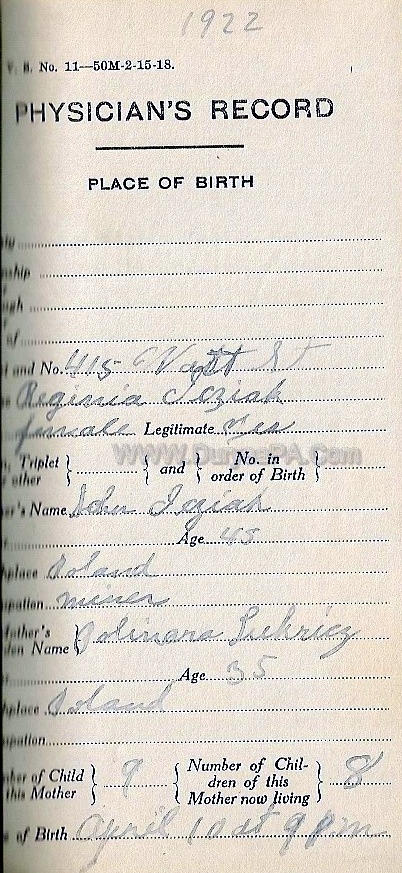 1922
V. S. No. 11—50M-2-15-18.
PHYSICIAN'S RECORD
PLACE OF BIRTH
ship
of
and No. 415 St
Reginia Ieziak
female Legitimate Yes
Triplet other } { and { No. in order of Birth }
er's Name John Ieziak
Age 45
place Poland
pation miner
other's
den Name }
Age 35
place Poland
pation
ber of Child this Mother } 9 { Number of Children of this Mother now living } 8
of Birth April 10 at 9 pm
WWW.DuryeaPA.Com